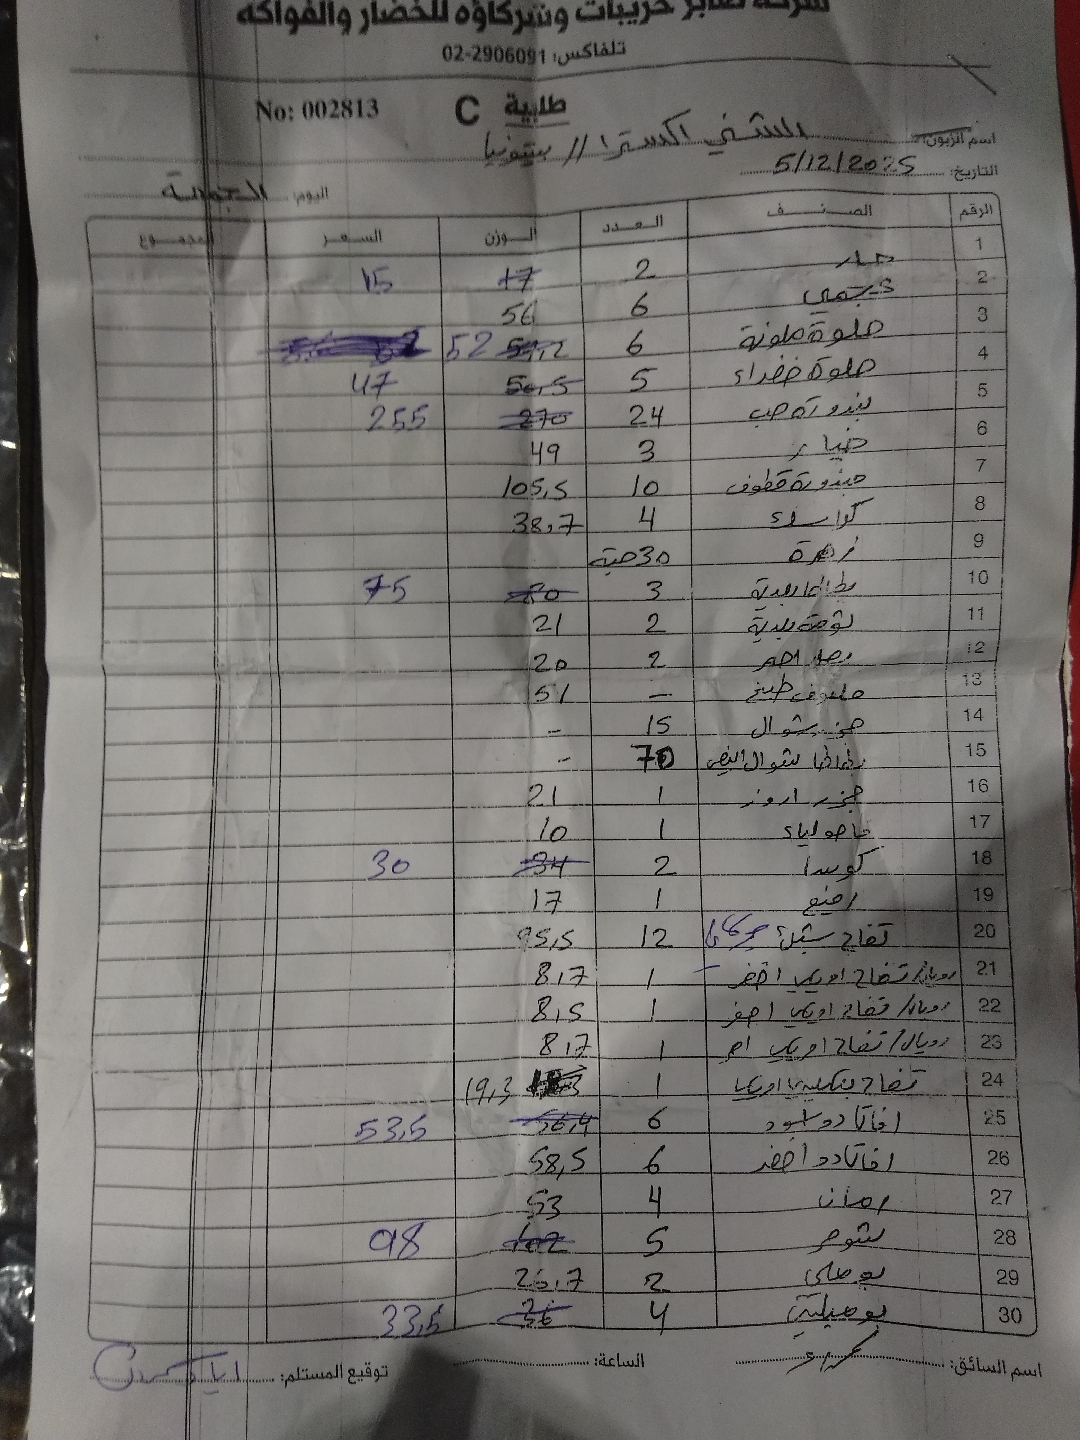 شركة صابر خريبات وشركاؤه للخضار والفواكه
تلفاكس: 02-2906091
No: 002813 C طلبية
اسم الزبون: الشني اكسترا // بيتونيا
التاريخ: 5/12/2025
اليوم: الجمعة
الرقم الصنف العدد الوزن السعر المجموع
1 2 17 15
2 عجمي 6 56
3 حلوة ملونة 6 52
4 حلوة خضراء 5 50,5 47
5 بندورة حب 24 270 255
6 خيار 3 49
7 بندورة قطوف 10 105,5
8 4 38,7
9 زهرة 30 حبة
10 بطاطا بلدية 3 80 75
11 بلدية 2 21
12 بصل احمر 2 20
13 ملفوف طبيخ — 51
14 جزر شوال 15 -
15 بطاطا شوال ابيض 70 -
16 جزر اروز 1 21
17 فاصولياء 1 10
18 كوسا 2 34 30
19 1 17
20 تفاح 12 95,5
21 رويال/ تفاح اوربي اخضر 1 8,7
22 رويال/ تفاح اوربي اصفر 1 8,5
23 رويال/ تفاح اوربي احمر 1 8,7
24 تفاح 1 19,3
25 افاكادو اسود 6 56,4 53,5
26 افاكادو اخضر 6 58,5
27 رمان 4 53
28 5 102 98
29 بوملي 2 26,7
30 4 36 33,5
اسم السائق: الساعة: توقيع المستلم: